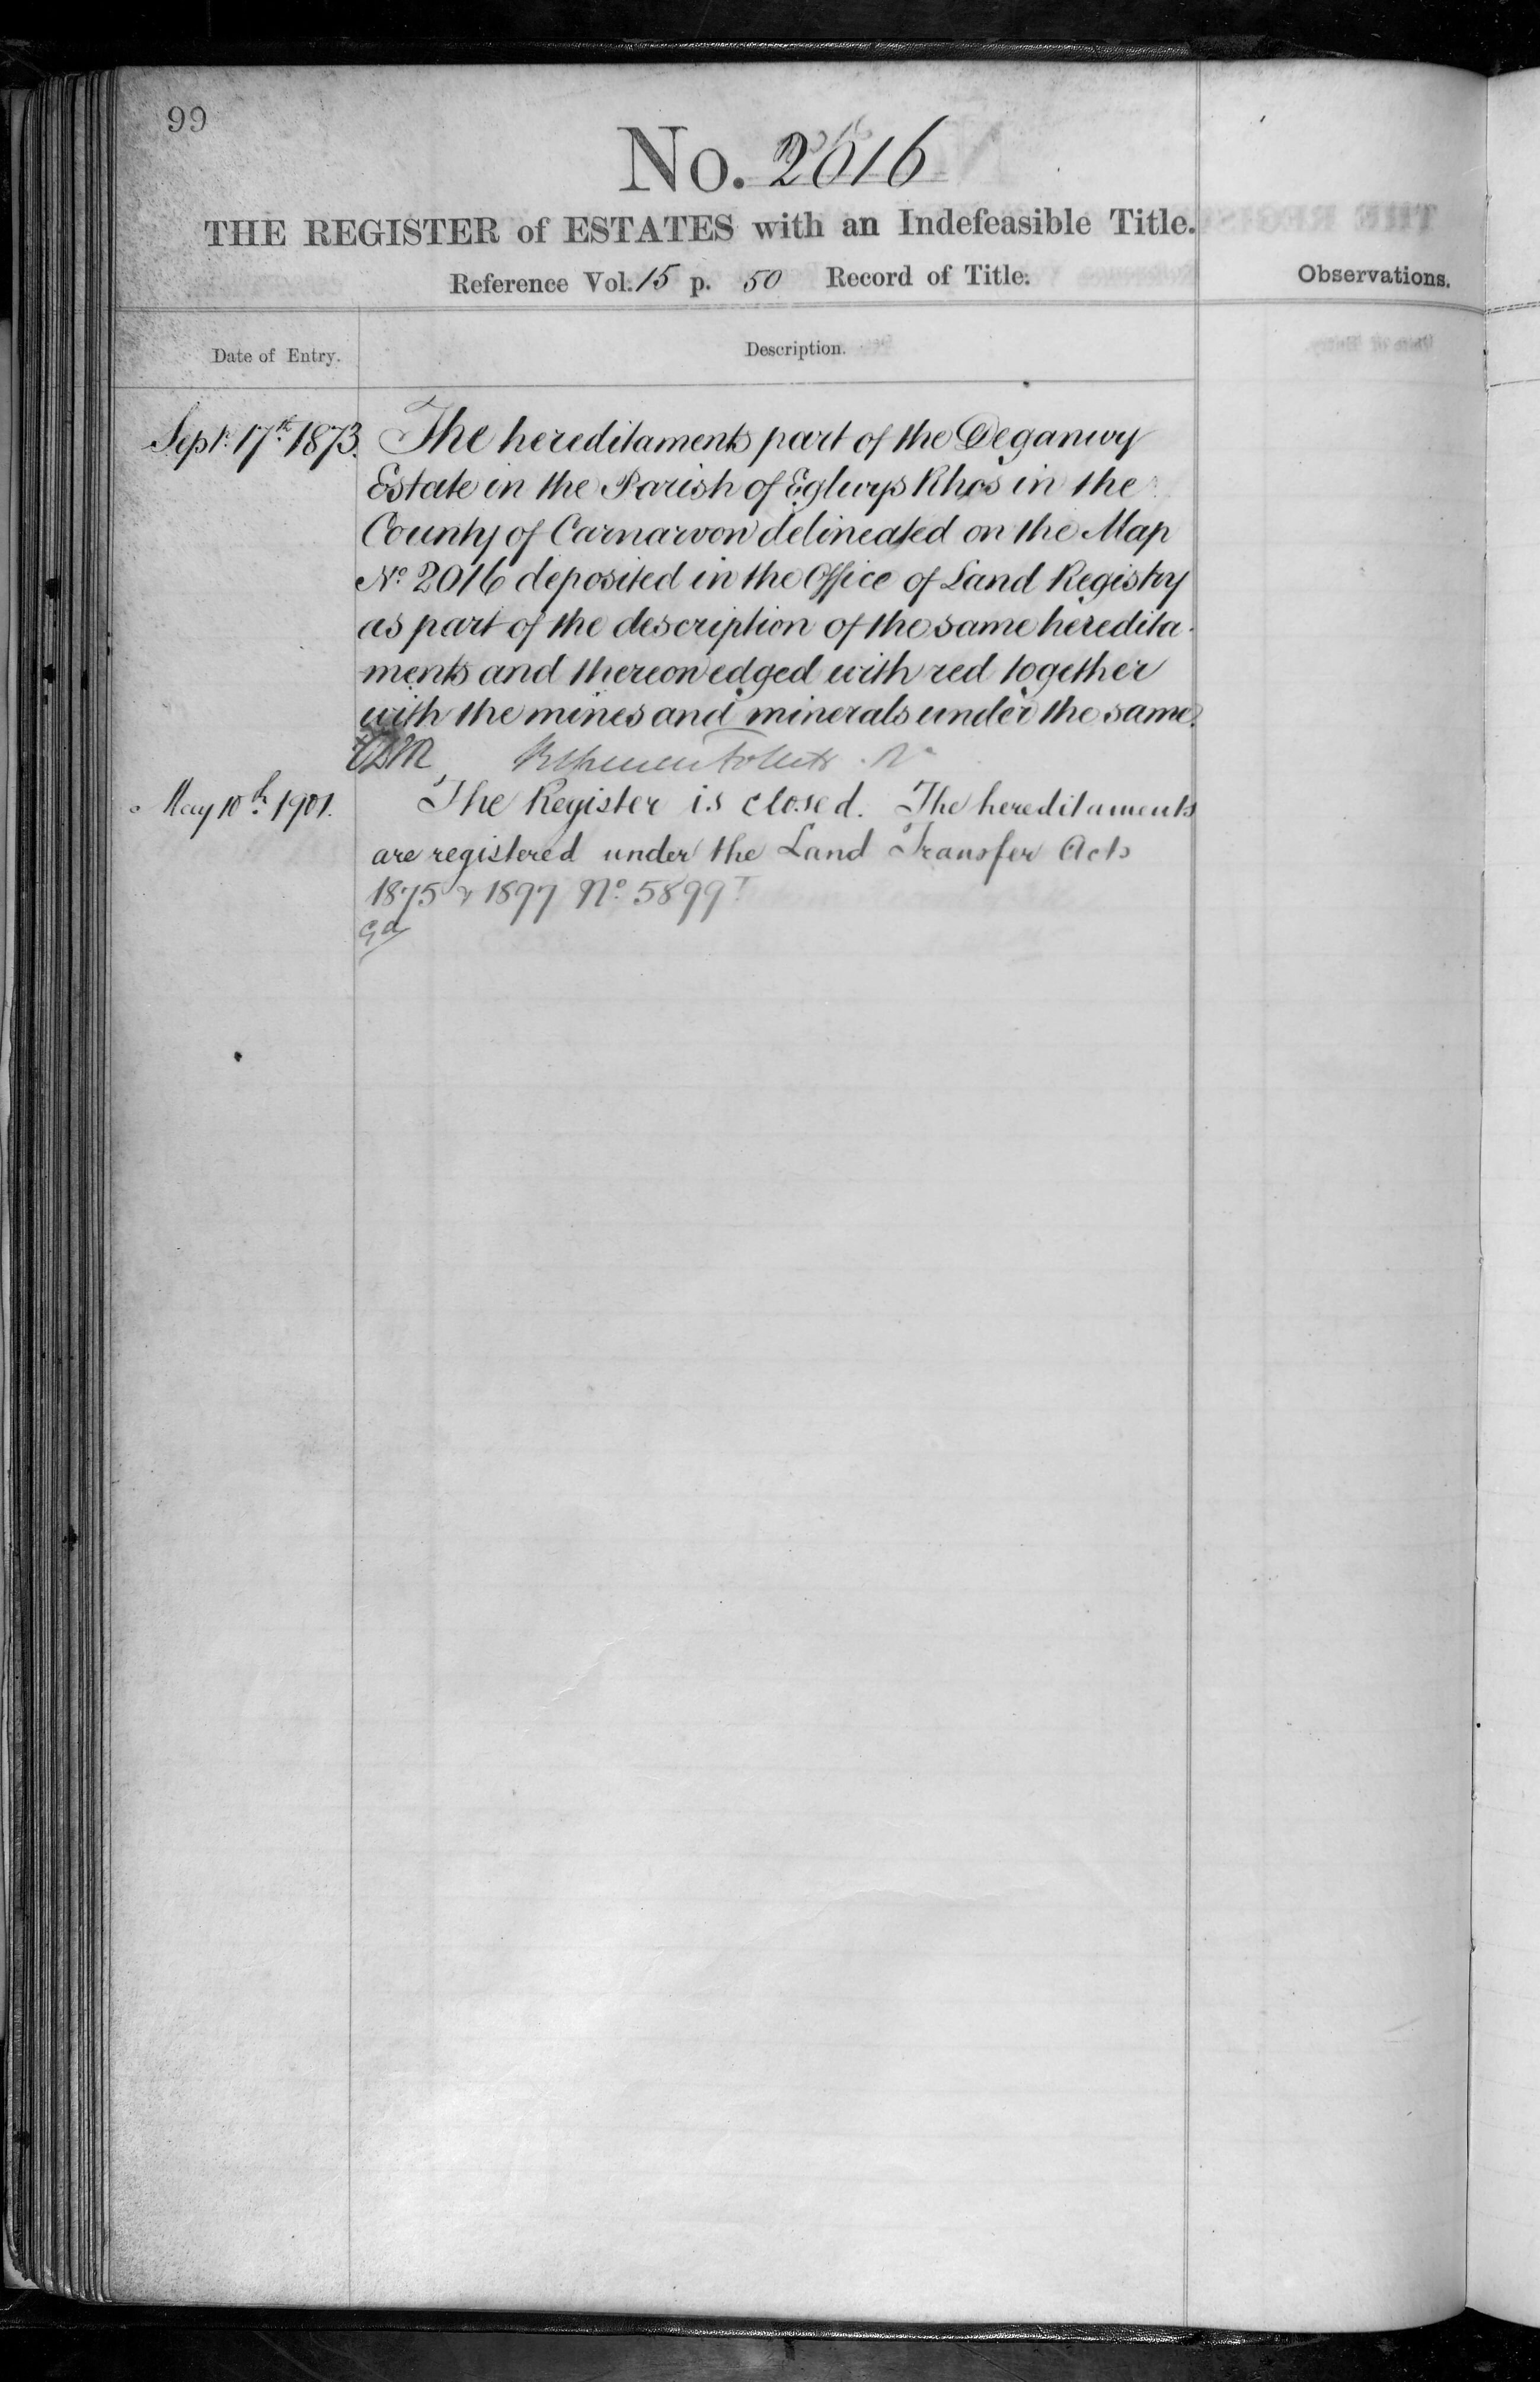 99
No. 2016
THE REGISTER of ESTATES with an Indefeasible Title.
Reference Vol. 15 p. 50 Record of Title.
Observations.
Date of Entry.
Description.
Sept. 17th 1873. The hereditaments part of the Deganwy
Estate in the Parish of Eglwys Rhos in the
County of Carnarvon delineated on the Map
No 2016 deposited in the Office of Land Registry
as part of the description of the same heredita-
ments and thereon edged with red together
with the mines and minerals under the same.
May 10th 1901. The Register is closed. The hereditaments
are registered under the Land Transfer Acts
1875 & 1897 No. 5899